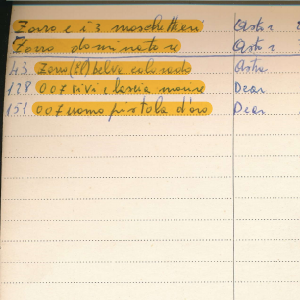 Zorro e i 3 moschettieri Astor
Zorro dominatore Astor
43 Zorro (il) belve colorado Astra
128 007 vivi e lascia morire Dear
151 007 uomo pistola d'oro Dear